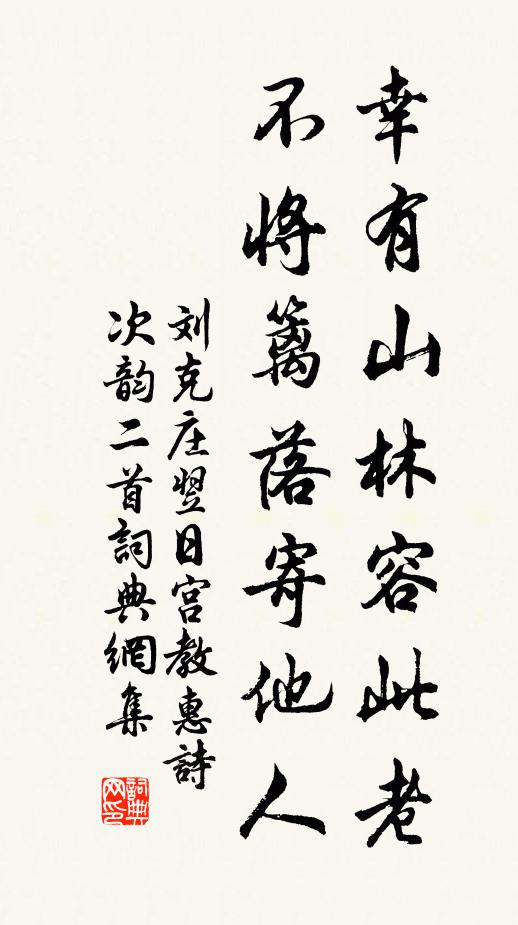 幸有山林容此老
不將篱落寄他人
刘克庄翌日宫教惠詩
次韵二首詞典網集
詞典
网印